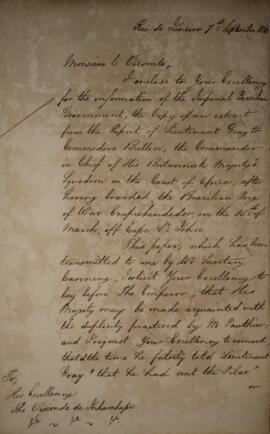 Rio de Janeiro 7th September 182
Monsieur le Vicomte,
I enclose to Your Excellency
for the information of the Imperial Brazilian
Government, the Copy of an extract
from the Report of Lieutenant Gray to
Commodore Bullen, the Commander
in Chief of His Britannick Majesty's
Squadron on the Coast of Africa, after
having boarded the Brazilian Brig
of War Emprehendedor, on the of
March, off Cape St John.
This paper, which has been
transmitted to me by Mr Secretary
Canning, I solicit Your Excellency to
lay before The Emperor, that His
Majesty may be made acquainted with
the duplicity practised by M.
and I request Your Excellency to remark
that at the time he falsely told Lieutenant
Gray "that he had not the Pilar"
or
To,
His Excellency
The Visconde de Inhambupe